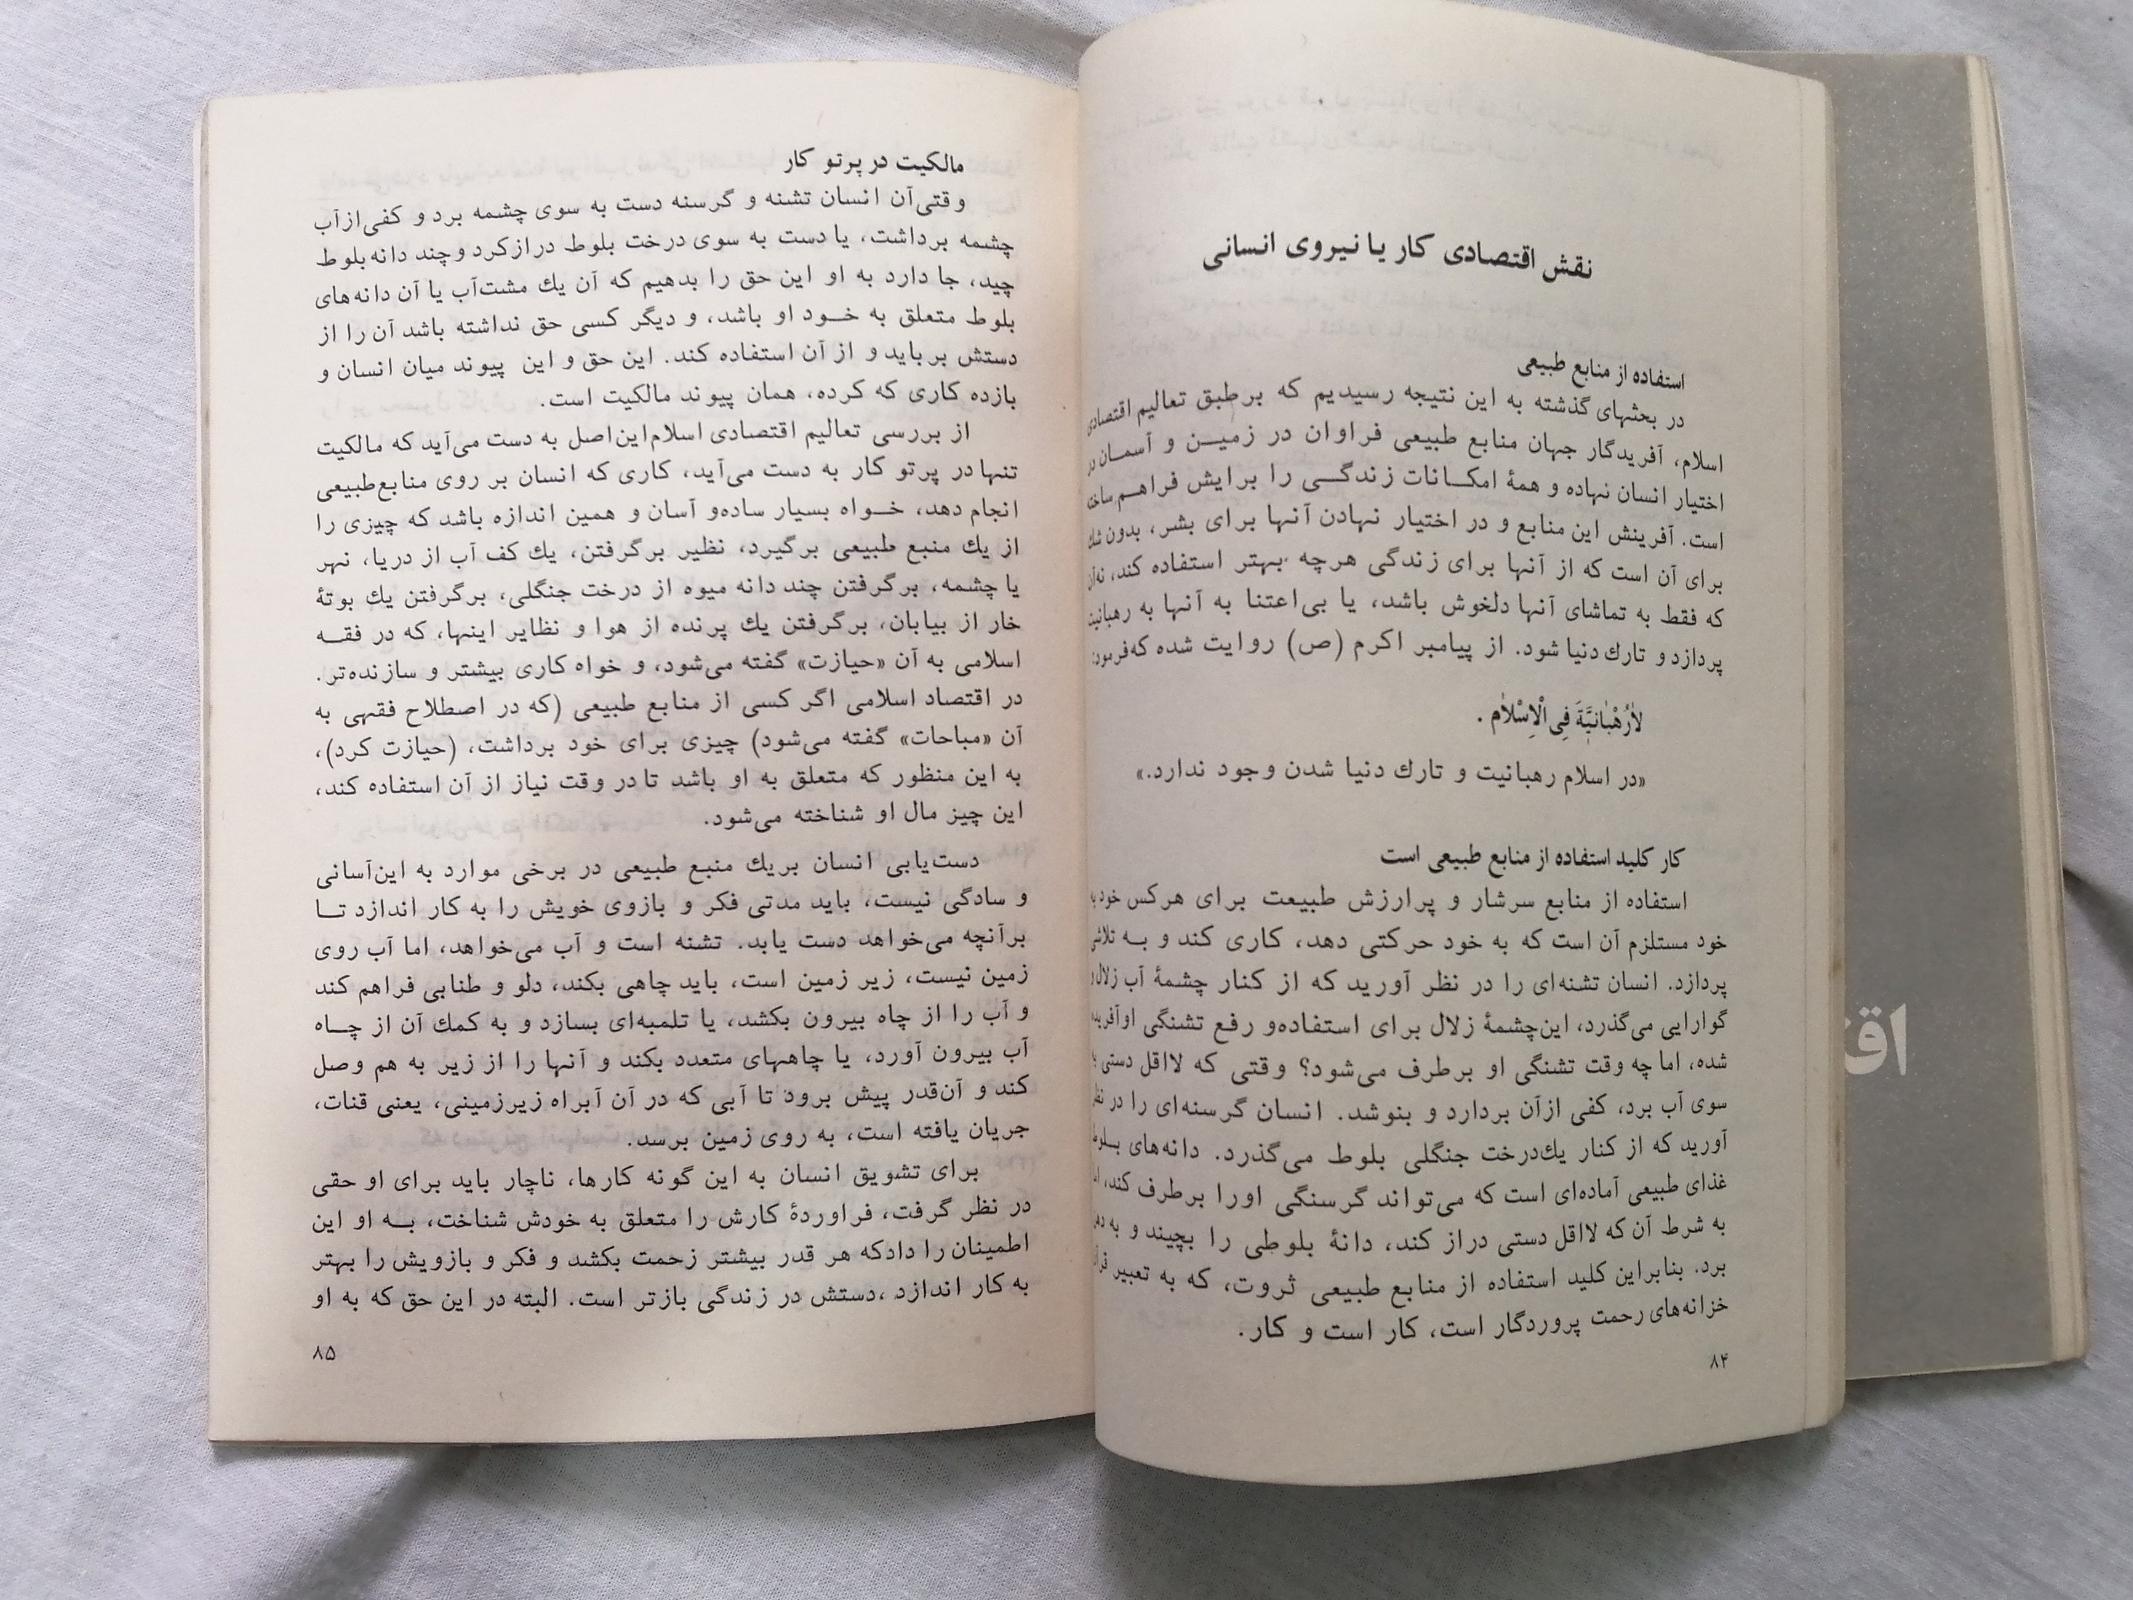 نقش اقتصادی کار یا نیروی انسانی
استفاده از منابع طبیعی
در بحثهای گذشته به این نتیجه رسیدیم که برطبق تعالیم اقتصادی
اسلام، آفریدگار جهان منابع طبیعی فراوان در زمین و آسمان در
اختیار انسان نهاده و همهٔ امکانات زندگی را برایش فراهم ساخته
است. آفرینش این منابع و در اختیار نهادن آنها برای بشر، بدون شك
برای آن است که از آنها برای زندگی هرچه بهتر استفاده کند، نه‌آن
که فقط به تماشای آنها دلخوش باشد، یا بی‌اعتنا به آنها به رهبانیت
پردازد و تارك دنیا شود. از پیامبر اکرم (ص) روایت شده که فرمود:
لاٰرُهْبٰانِیَّةَ فِی الْاِسْلاٰم .
«در اسلام رهبانیت و تارك دنیا شدن وجود ندارد.»
کار کلید استفاده از منابع طبیعی است
استفاده از منابع سرشار و پرارزش طبیعت برای هرکس خود به
خود مستلزم آن است که به خود حرکتی دهد، کاری کند و به تلاش
پردازد. انسان تشنه‌ای را در نظر آورید که از کنار چشمهٔ آب زلال و
گوارایی می‌گذرد، این‌چشمهٔ زلال برای استفاده‌و رفع تشنگی اوآفریده
شده، اما چه وقت تشنگی او برطرف می‌شود؟ وقتی که لااقل دستی به
سوی آب برد، کفی ازآن بردارد و بنوشد. انسان گرسنه‌ای را در نظر
آورید که از کنار یك‌درخت جنگلی بلوط می‌گذرد. دانه‌های بلوط
غذای طبیعی آماده‌ای است که می‌تواند گرسنگی اورا برطرف کند، اما
به شرط آن که لااقل دستی دراز کند، دانهٔ بلوطی را بچیند و به دهن
برد. بنابراین کلید استفاده از منابع طبیعی ثروت، که به تعبیر قرآن
خزانه‌های رحمت پروردگار است، کار است و کار.
۸۴
مالکیت در پرتو کار
وقتی‌آن انسان تشنه و گرسنه دست به سوی چشمه برد و کفی‌ازآب
چشمه برداشت، یا دست به سوی درخت بلوط درازکرد و چند دانه‌بلوط
چید، جا دارد به او این حق را بدهیم که آن یك مشت‌آب یا آن دانه‌های
بلوط متعلق به خود او باشد، و دیگر کسی حق نداشته باشد آن را از
دستش برباید و از آن استفاده کند. این حق و این پیوند میان انسان و
بازده کاری که کرده، همان پیوند مالکیت است.
از بررسی تعالیم اقتصادی اسلام‌این‌اصل به دست می‌آید که مالکیت
تنها در پرتو کار به دست می‌آید، کاری که انسان بر روی منابع‌طبیعی
انجام دهد، خواه بسیار ساده‌و آسان و همین اندازه باشد که چیزی را
از یك منبع طبیعی برگیرد، نظیر برگرفتن، یك کف آب از دریا، نهر
یا چشمه، برگرفتن چند دانه میوه از درخت جنگلی، برگرفتن یك بوتهٔ
خار از بیابان، برگرفتن یك پرنده از هوا و نظایر اینها، که در فقه
اسلامی به آن «حیازت» گفته می‌شود، و خواه کاری بیشتر و سازنده‌تر.
در اقتصاد اسلامی اگر کسی از منابع طبیعی (که در اصطلاح فقهی به
آن «مباحات» گفته می‌شود) چیزی برای خود برداشت، (حیازت کرد)،
به این منظور که متعلق به او باشد تا در وقت نیاز از آن استفاده کند،
این چیز مال او شناخته می‌شود.
دست‌یابی انسان بریك منبع طبیعی در برخی موارد به این‌آسانی
و سادگی نیست، باید مدتی فکر و بازوی خویش را به کار اندازد تا
برآنچه می‌خواهد دست یابد. تشنه است و آب می‌خواهد، اما آب روی
زمین نیست، زیر زمین است، باید چاهی بکند، دلو و طنابی فراهم کند
و آب را از چاه بیرون بکشد، یا تلمبه‌ای بسازد و به کمك آن از چاه
آب بیرون آورد، یا چاههای متعدد بکند و آنها را از زیر به هم وصل
کند و آن‌قدر پیش برود تا آبی که در آن آبراه زیرزمینی، یعنی قنات،
جریان یافته است، به روی زمین برسد.
برای تشویق انسان به این گونه کارها، ناچار باید برای او حقی
در نظر گرفت، فراوردهٔ کارش را متعلق به خودش شناخت، به او این
اطمینان را دادکه هر قدر بیشتر زحمت بکشد و فکر و بازویش را بهتر
به کار اندازد ،دستش در زندگی بازتر است. البته در این حق که به او
۸۵